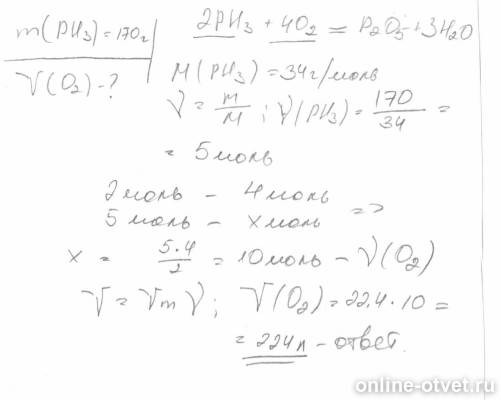 m(PH₃)=170г
V(O₂)-?
2PH₃ + 4O₂ = P₂O₅+3H₂O
M(PH₃)=34г/моль
ν = m/M ; ν(PH₃)= 170/34 =
= 5моль
2моль - 4моль
5моль - xмоль =>
x = 5·4/2 = 10моль - ν(O₂)
V = Vm ν ; V(O₂)=22,4·10 =
= 224л - ответ.
online-otvet.ru